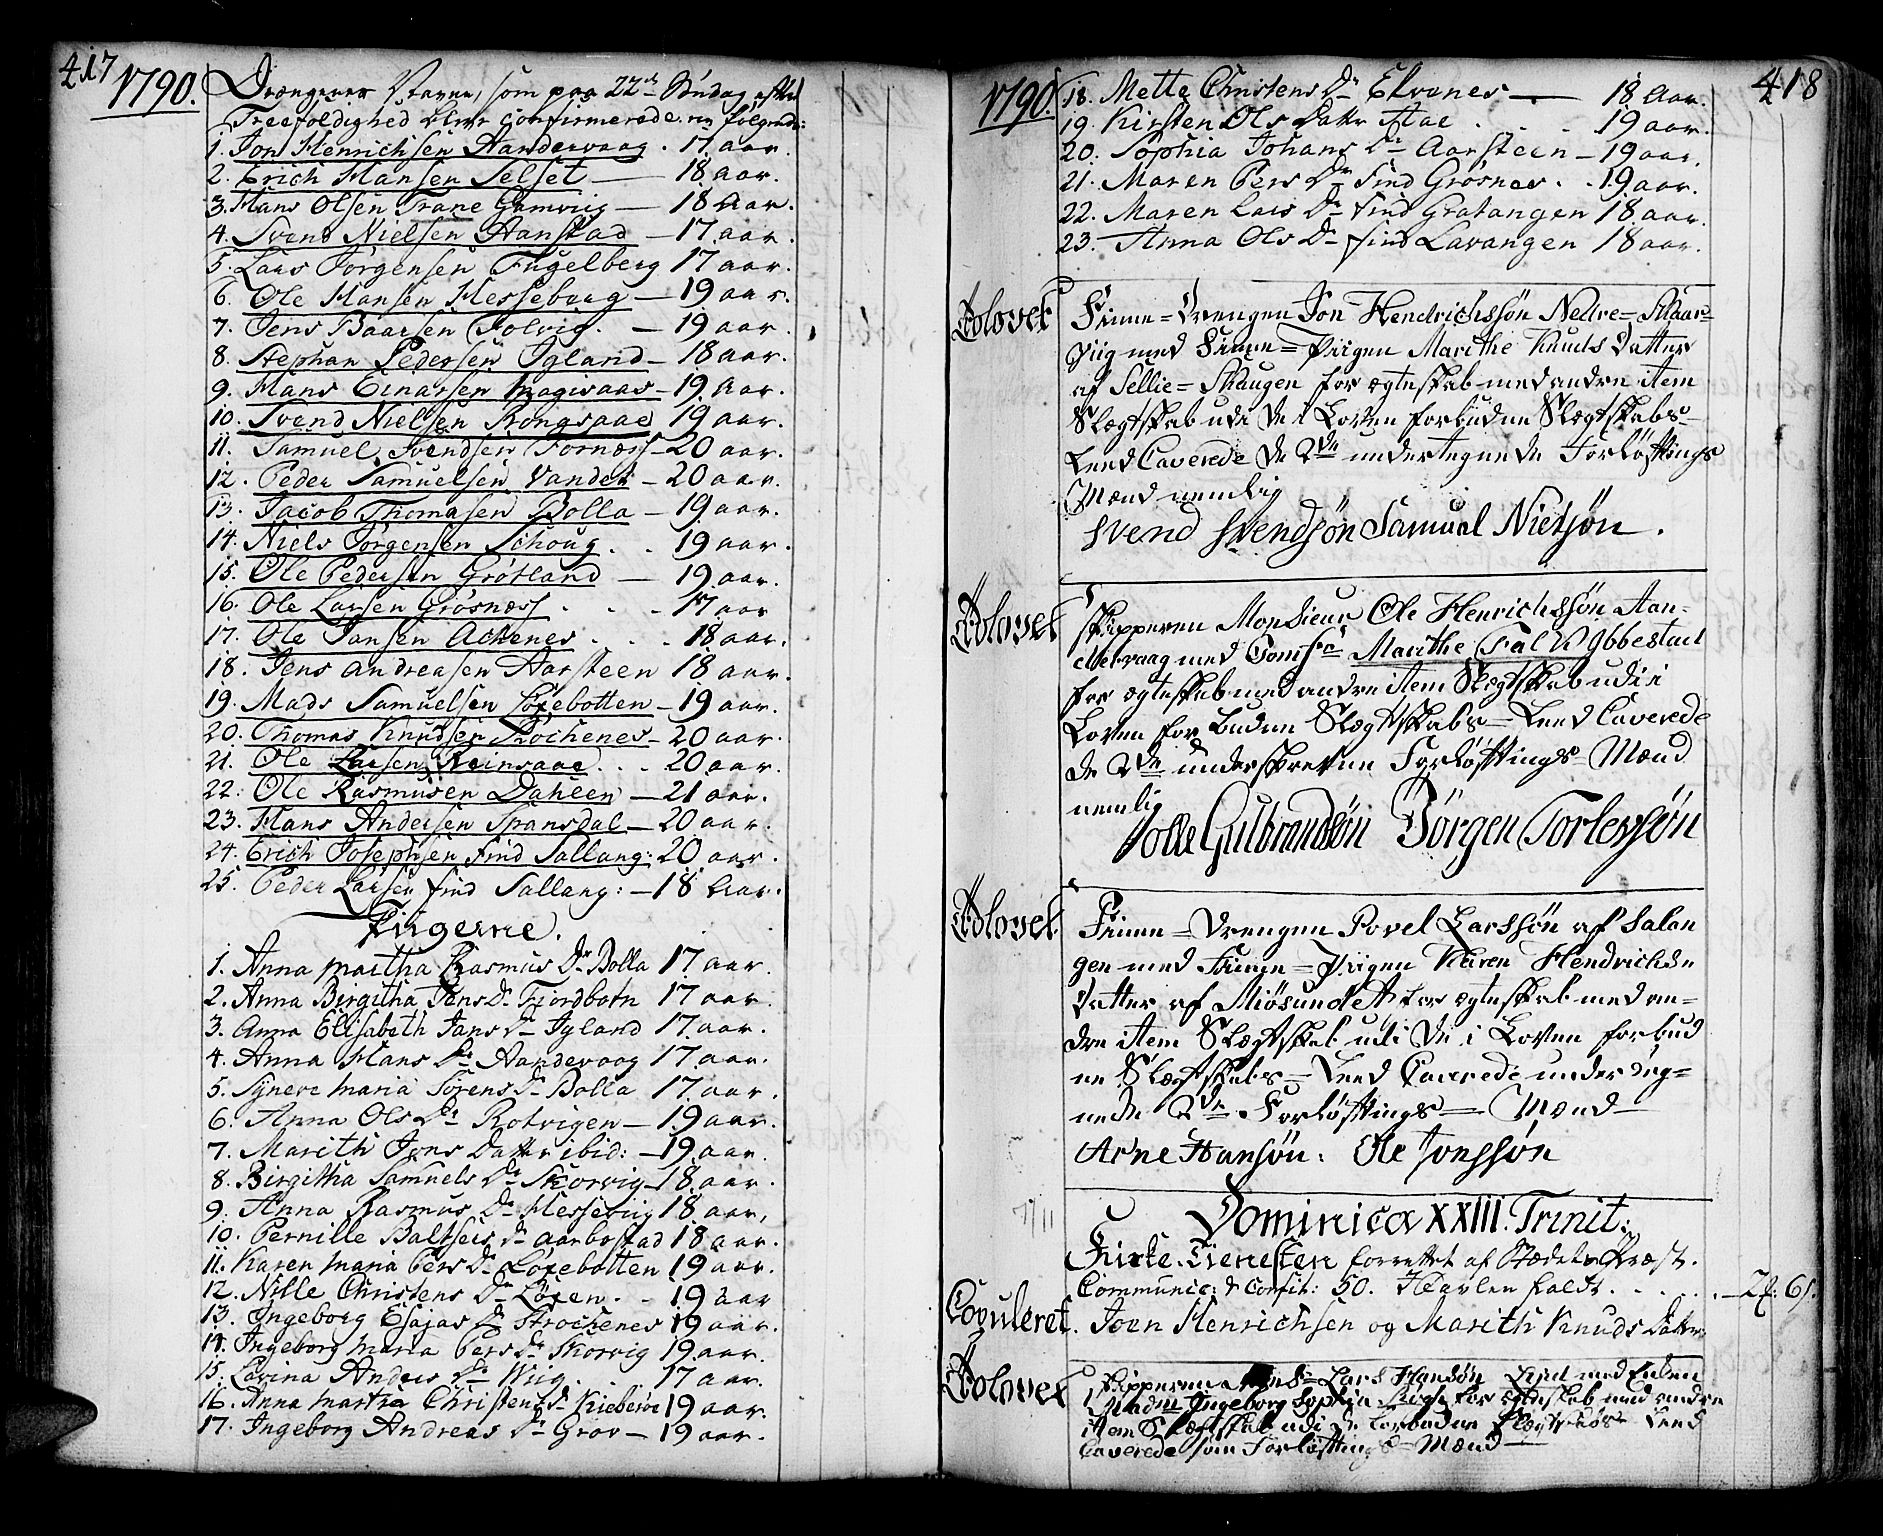 417
1790.
Drængenes Navne, som paa 22de Søndag efter
Treefoldighed bleve confirmerede, ere følgende:
1. Jon Henrichsen Aandervaag . 17 aar.
2. Erich Hansen Selset — 18 aar.
3. Hans Olsen Trane Gamviig — 18 Aar.
4. Svend Nielsen Hanstad — 17 aar.
5. Lars Jørgensen Fugelberg 17 aar.
6. Ole Hansen Hesseberg — 19 aar.
7. Jens Baarsen Folvig. — 19 aar.
8. Stephan Pedersen Igland — 18 aar.
9. Hans Einarsen — 19 aar.
10. Svend Nielsen Kongsaae 19 aar.
11. Samuel Svendsen Fornæs — 20 aar.
12. Peder Samuelsen Vander — 20 aar.
13. Jacob Thomasen Bolla — 19 aar.
14. Niels Jørgensen Schoug . . 19 aar.
15. Ole Pedersen Grøtland — 19 aar.
16. Ole Larsen Grøsnæss . . . 17 aar
17. Ole Jansen Achenes . . . 18 aar.
18. Jens Andreasen Aarsteen 18 aar.
19. Mads Samuelsen Løxebotten — 19 aar.
20. Thomas Knudsen Strochenes — 20 aar.
21. Ole Larsen Reinsaae . . . 20 aar.
22. Ole Rasmusen Daheen — 21 aar.
23. Hans Andersen Spansdal — 20 aar.
24. Erich Josephsen find Sallang: 20 aar.
25. Peder Larsen find Sallang: — 18 Aar.
Piigerne.
1. Anna Martha Rasmus Dr Bolla 17 aar.
2. Anna Birgitha Jens Dr Fjordbotn 17 aar.
3. Anna Elisabeth Jans Dr Igland 17 aar.
4. Anna Hans Dr Aandevaag 17 aar.
5. Synere Maria Sørens Dr Bolla 17 aar.
6. Anna Ols Dr Rotvigen — 19 aar.
7. Marith Jons Datter ibid: — 19 aar.
8. Birgitha Samuels Dr Skorvig — 18. aar.
9. Anna Rasmus Dr Hesseviig 18 aar,
10. Pernille Baltsers Dr Aarbostad 18 aar.
11. Karen Maria Pers Dr Løxebotten 19 aar.
12. Nille Christens Dr Løxen . . 19 aar
13. Ingeborg Esajas Dr Strochenes 19 aar.
14. Ingeborg Maria Pers Dr Skorvig 19 aar.
15. Lavina Anders Dr Wiig . . 17 aar.
16. Anna Martha Christens Dr 19 aar.
17. Ingeborg Andreas Dr Grov — 19 aar.
1790.
418
18. Mette Christens Dr Elvenes — 18 Aar.
19. Kirsten Ols Datter . . . 19 aar.
20. Sophia Johans Dr Aarsteen — 19 aar.
21. Maren Pers Dr find Grøsnes . . 19 aar.
22. Maren Lars Dr find Gratangen 18 aar.
23. Anna Ols Dr find Lavangen 18 aar.
Trolovet
Finne-Drengen Jon Hendrichssøn Nedre-
viig med Finne-Piigen Marithe Knuds Datter
af Sellie-Skaugen for ægteskab med andre item
Slægtskab udi de i Loven forbudne Slægtskabs-
Leed Caverede de 2de undertegnede Forløftnings
Mænd nemlig
Svend Svendsøn Samuel Nielsøn.
Trolovet
Skipperen Monsieur Ole Henrichssøn Aan-
dervaag med Marithe Fal Ybbestad
for ægteskab med andre item Slægtskab udi i
Loven forbudne Slægtskabs-Leed Caverede
de 2de underskrevne Forløftnings-Mænd
nemlig
Jolle Gulbrandsøn Jörgen Torlevsøn
Trolovet
Finne-Drengen Povel Larssøn af Salan
gen med Finne-Piigen Karen Hendrichs
Datter af Miøsundet for ægteskab med an-
dre item Slægtskab udi de i Loven forbud
ne Slægtskabs-Leed Caverede underteg-
nede 2de Forløftnings-Mænd
Arne Hansøn. Ole Jonssøn
Dominica XXIII. Trinit:
Kirke-Tienesten forrettet af Stædets Præst.
Communic: & Confit: 50. Tavlen faldt . . . . . —2#. 6s.
Copuleret
Joen Henrichsen og Marith Knuds Datter
Trolovet
Skipperen Lars Hansøn med Enken
Madme Ingeborg Sophia for ægteskab med andre
item Slægtskab udi de forbudne Slægtskabs Leed
Caverede som Forløftnings-Mænd —